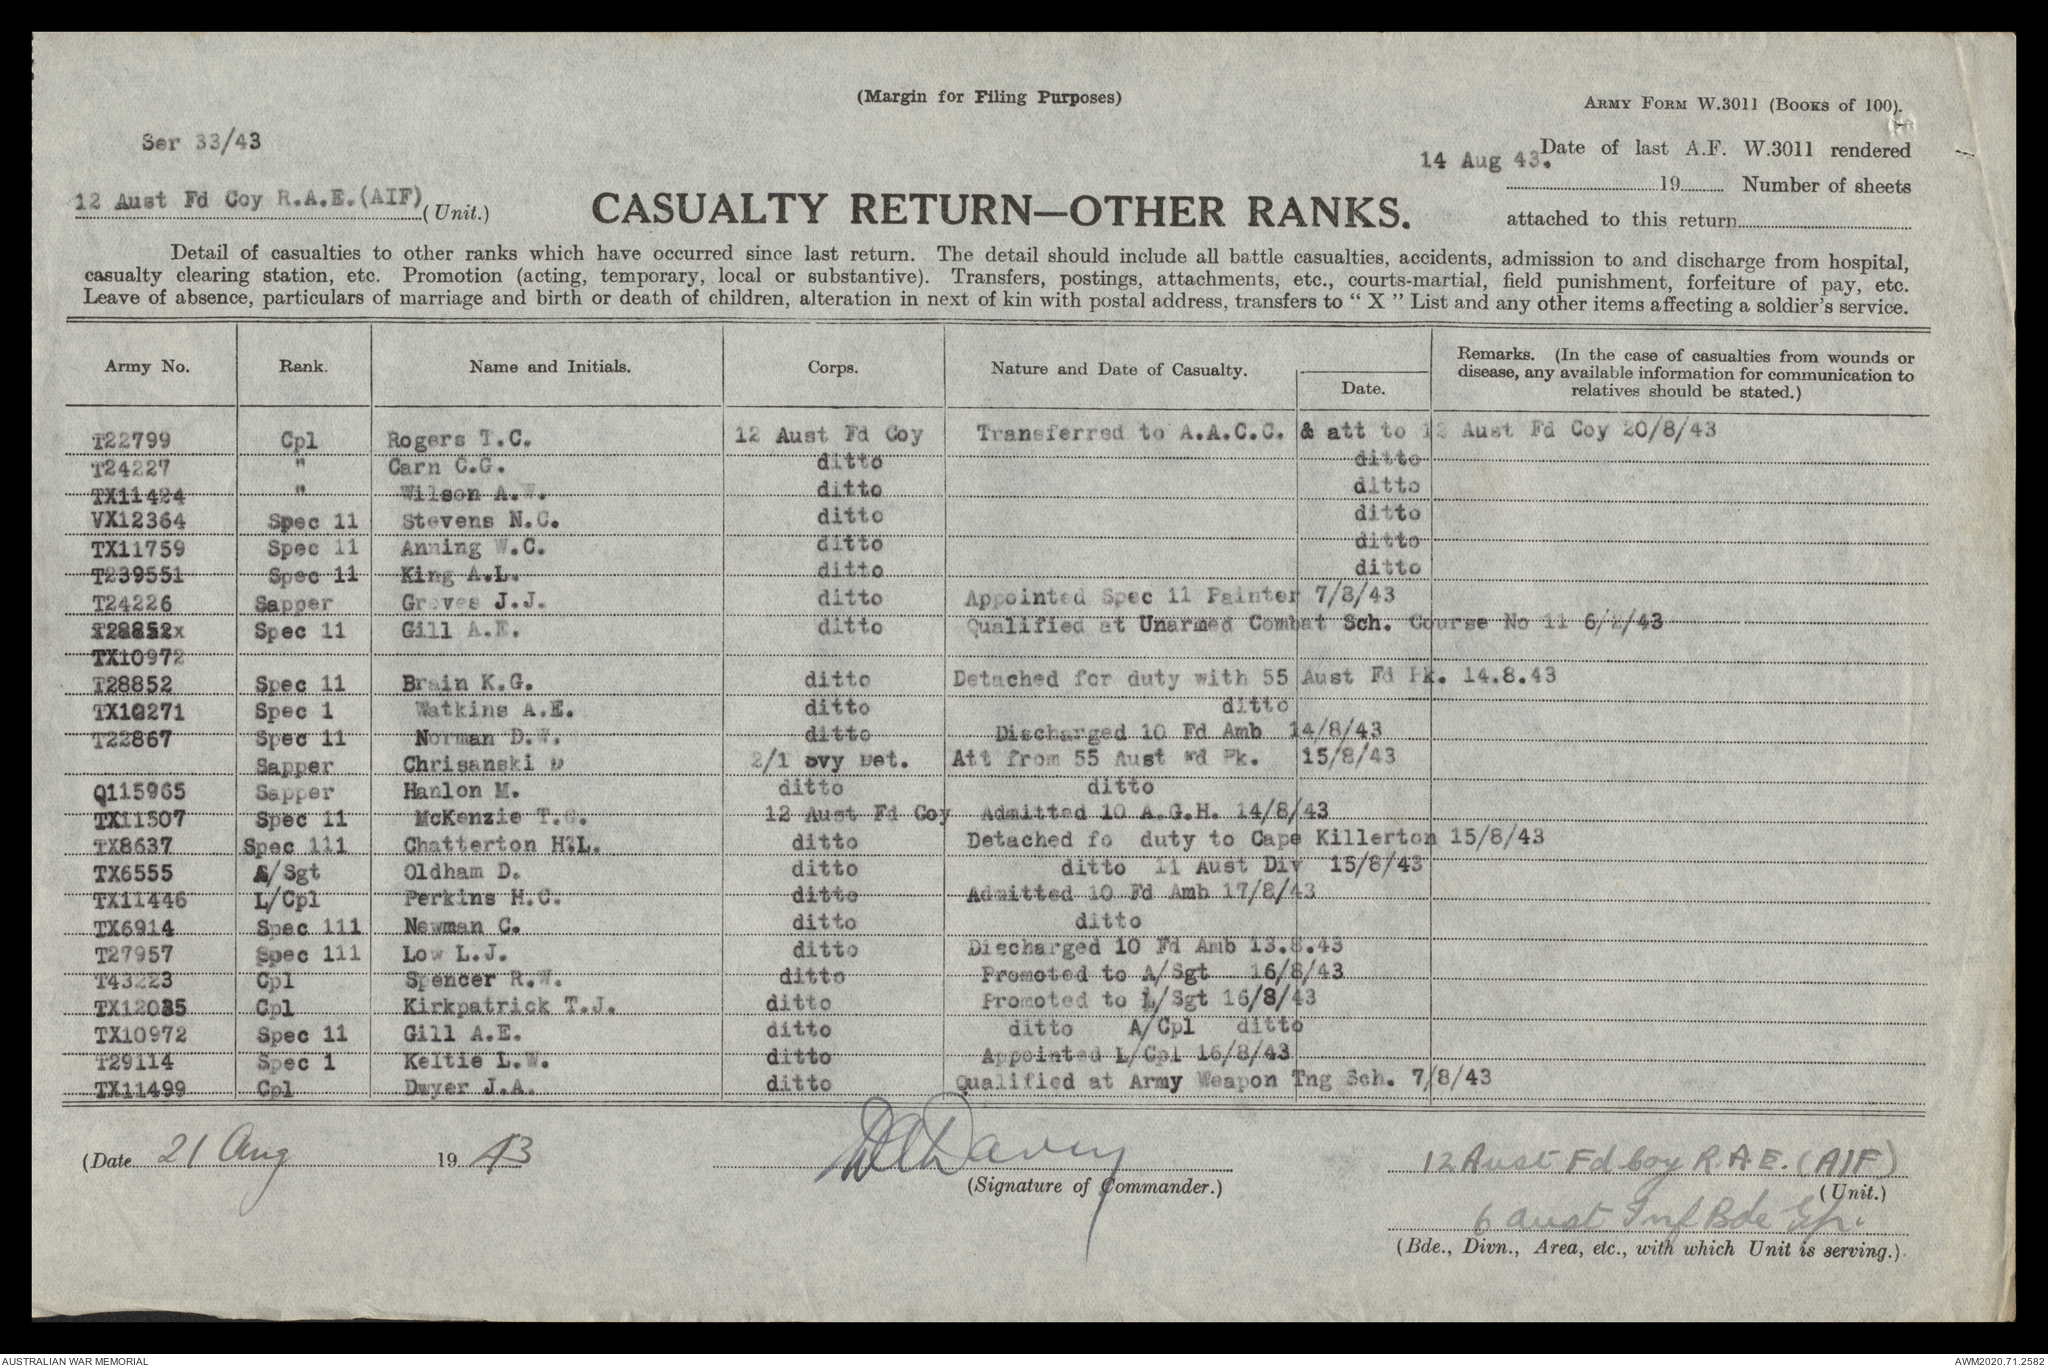 (Margin for Filing Purposes)
ARMY FORM W.3011 (BOOKS of 100).
Ser 33/43
14 Aug 43. Date of last A.F. W.3011 rendered
19 Number of sheets
12 Aust Fd Coy R.A.E.(AIF) (Unit.)
CASUALTY RETURN—OTHER RANKS.
attached to this return
Detail of casualties to other ranks which have occurred since last return. The detail should include all battle casualties, accidents, admission to and discharge from hospital,
casualty clearing station, etc. Promotion (acting, temporary, local or substantive). Transfers, postings, attachments, etc., courts-martial, field punishment, forfeiture of pay, etc.
Leave of absence, particulars of marriage and birth or death of children, alteration in next of kin with postal address, transfers to " X " List and any other items affecting a soldier's service.
Army No. Rank. Name and Initials. Corps. Nature and Date of Casualty. Date. Remarks. (In the case of casualties from wounds or
disease, any available information for communication to
relatives should be stated.)
T22799 Cpl Rogers T.C. 12 Aust Fd Coy Transferred to A.A.C.C. & att to 12 Aust Fd Coy 20/8/43
T24227 " Carn C.G. ditto ditto
TX11424 " Wilson A.W. ditto ditto
VX12364 Spec 11 Stevens N.C. ditto ditto
TX11759 Spec 11 Anning W.C. ditto ditto
T239551 Spec 11 King A.L. ditto ditto
T24226 Sapper Groves J.J. ditto Appointed Spec 11 Painter 7/8/43
T28852x Spec 11 Gill A.E. ditto Qualified at Unarmed Combat Sch. Course No 11 6/2/43
TX10972
T28852 Spec 11 Brain K.G. ditto Detached for duty with 55 Aust Fd Pk. 14.8.43
TX10271 Spec 1 Watkins A.E. ditto ditto
T22867 Spec 11 Norman D.W. ditto Discharged 10 Fd Amb 14/8/43
Sapper Chrisanski D 2/1 Svy Det. Att from 55 Aust Fd Pk. 15/8/43
Q115965 Sapper Hanlon M. ditto ditto
TX11507 Spec 11 McKenzie T.G. 12 Aust Fd Coy Admitted 10 A.G.H. 14/8/43
TX8637 Spec 111 Chatterton H.L. ditto Detached fo duty to Cape Killerton 15/8/43
TX6555 A/Sgt Oldham D. ditto ditto 11 Aust Div 15/8/43
TX11446 L/Cpl Perkins H.C. ditto Admitted 10 Fd Amb 17/8/43
TX6914 Spec 111 Newman C. ditto ditto
T27957 Spec 111 Low L.J. ditto Discharged 10 Fd Amb 13.8.43
T43223 Cpl Spencer R.W. ditto Promoted to A/Sgt 16/8/43
TX12035 Cpl Kirkpatrick T.J. ditto Promoted to L/Sgt 16/8/43
TX10972 Spec 11 Gill A.E. ditto ditto A/Cpl ditto
T29114 Spec 1 Keltie L.W. ditto Appointed L/Cpl 16/8/43
TX11499 Cpl Dwyer J.A. ditto Qualified at Army Weapon Tng Sch. 7/8/43
(Date 21 Aug 19 43
DADavey
(Signature of Commander.)
12 Aust Fd Coy R.A.E. (AIF)
(Unit.)
6 Aust Inf Bde Gp.
(Bde., Divn., Area, etc., with which Unit is serving.)
AUSTRALIAN WAR MEMORIAL
AWM2020.71.2582